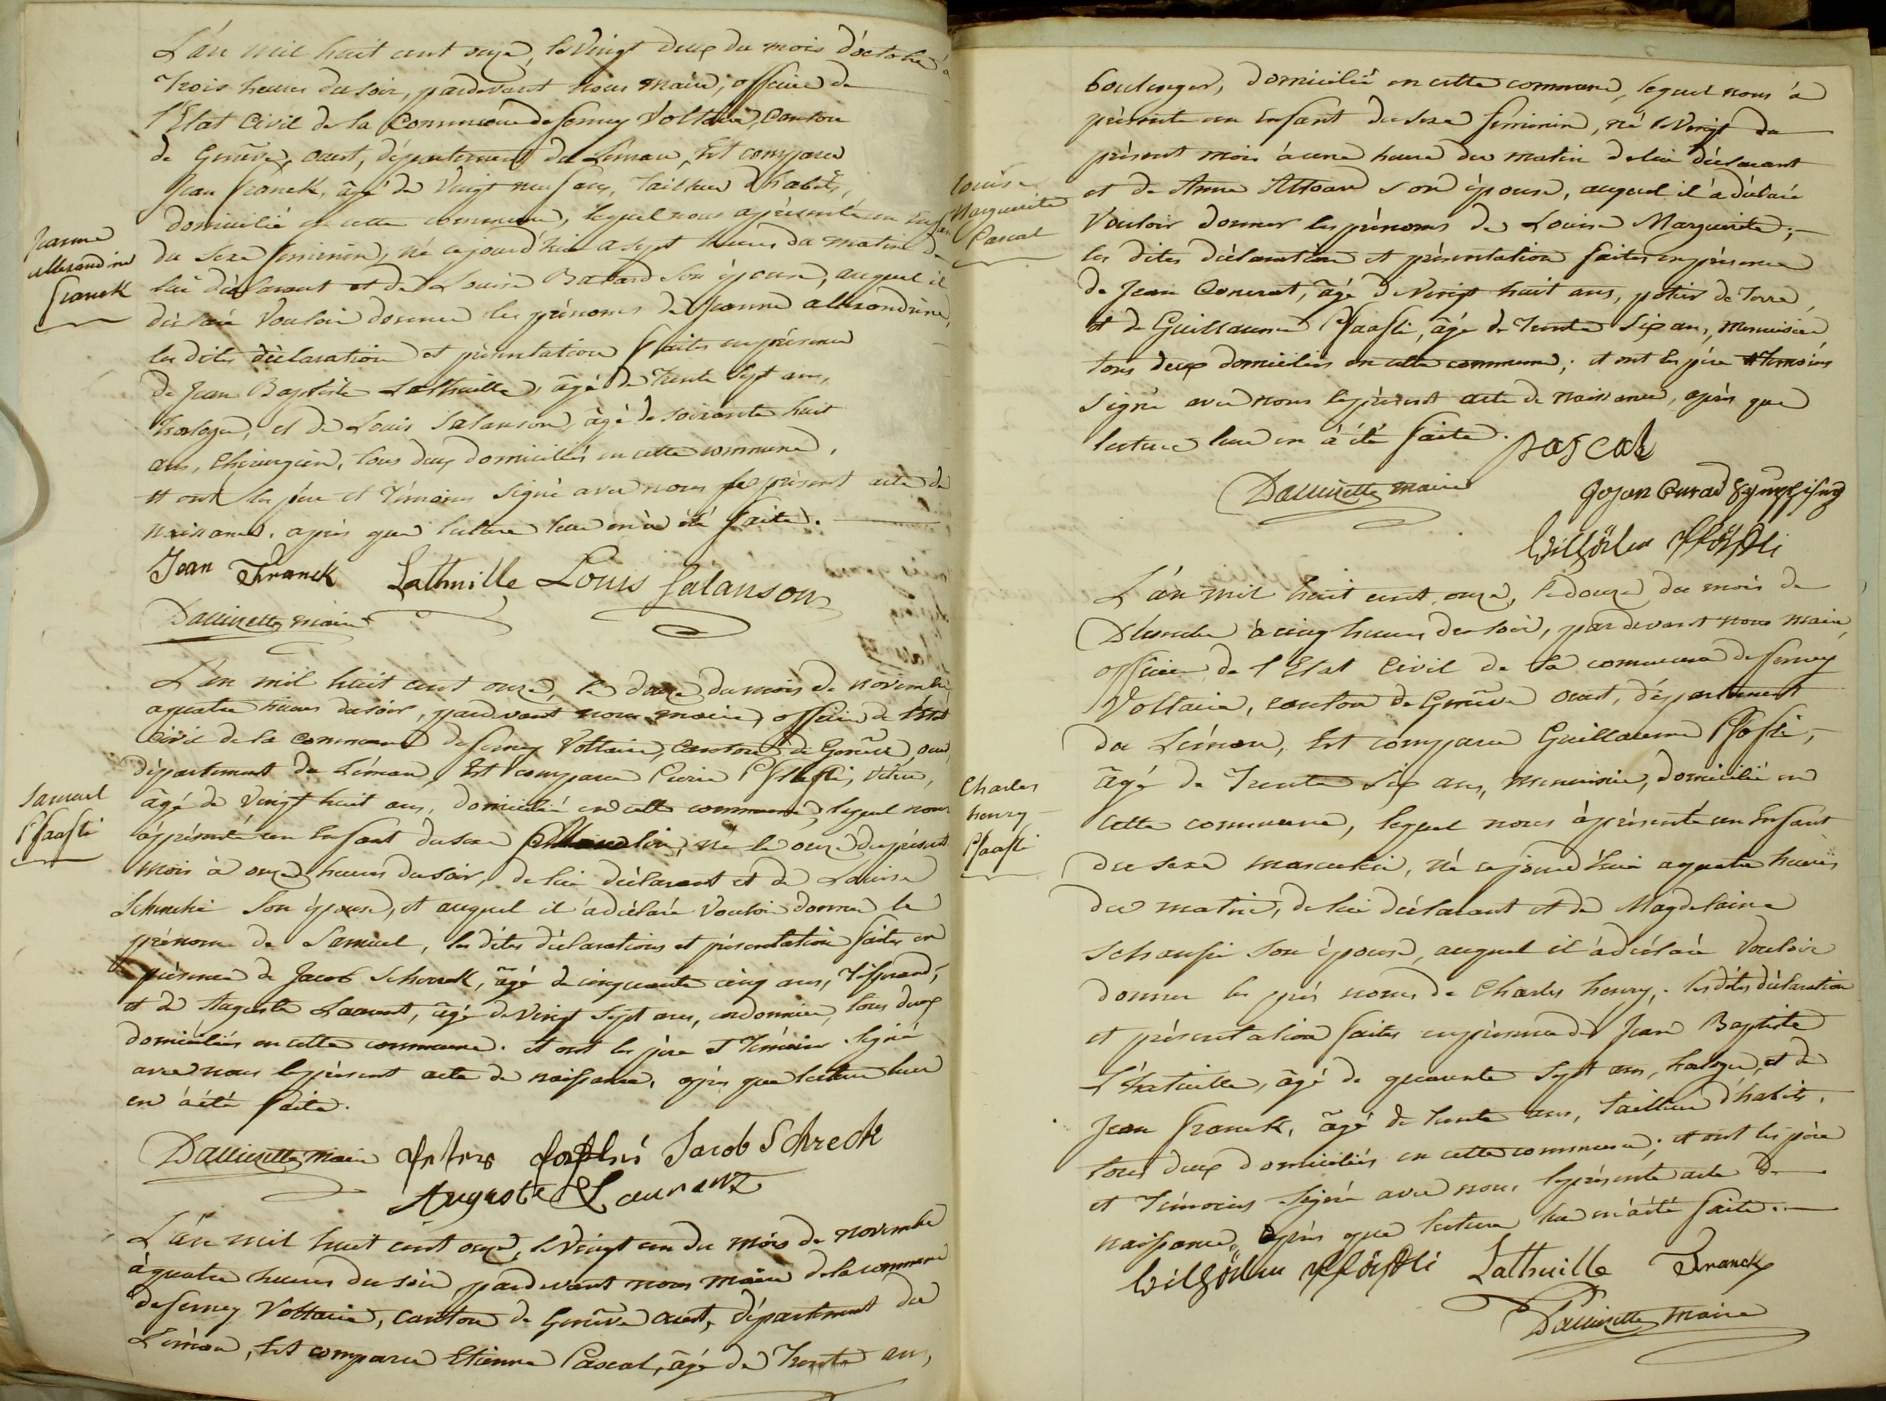 L'an mil huit cent onze, le Vingt deux du mois d'octobre à
Trois heures du soir, pardevant nous maire, officier de
l'Etat Civil de la Commune de ferney Voltaire, Canton
de Genêve, ouest, département du Léman, Est comparu
Jean Franck, âgé de Vingt neuf ans, Tailleur d'habits,
domicilié en cette commune, lequel nous a présenté un Enfant
Jeanne
Allexandrine
Franck
du sexe feminin, né cejourd'hui a sept heures du matin de
lui déclarant et de Louise Bavard son épouse, auquel il
déclaré Vouloir donner les prénoms de Jeanne allexandrine,
les dites déclaration et présentation Faites en présence
de Jean Baptiste Lathuille, âgé de Trente Sept ans,
horloger, et de Louis Salanson, âgé de soixante huit
ans, Chirurgien, Tous deux domiciliés en cette commune,
et ont les père et Témoins signé avec nous le présent acte de
naissance. après que lecture leur en a été faite.
Jean Franck Lathuille Louis Salanson
maire
L'an mil huit cent onze, le douze du mois de novembre
a quatre heures du soir, pardevant nous maire, officier de l'Etat
Civil de la commune de ferney Voltaire, Canton de Genêve, ouest,
département du Léman, Est comparu Pierre Pfaefli,
Samuel
Pfaefli
âgé de Vingt huit ans, domicilié en cette commune, lequel nous
a présenté un Enfant du sexe né le onze du présent
mois à onze heures du soir, de lui déclarant et de Louise
son épouse, et auquel il a déclaré Vouloir donner le
prénom de Samuel, les dites déclarations et présentation faites en
présence de Jacob Schreck, âgé de cinquante cinq ans, Tisserand,
et de Auguste Laurent, âgé de Vingt Sept ans, cordonnier, tous deux
domiciliés en cette commune. et ont les père et Témoins signé
avec nous le présent acte de naissance, après que lecture leur
en a été faite.
maire Jacob Schreck
Auguste Laurent
L'an mil huit cent onze, le Vingt un du mois de novembre
à quatre heures du soir pardevant nous maire de la commune
de ferney Voltaire, Canton de Genêve ouest, département du
Léman, Est comparu Etienne Pascal, âgé de Trente ans,
boulenger, domicilié en cette commune, lequel nous à
présenté un Enfant du sexe féminin, né le Vingt du
présent mois à une heure du matin de lui déclarant
Louise
Marguerite
Pascal
et de Anne son épouse, auquel il a déclaré
Vouloir donner les prénoms de Louise Marguerite;
les dites déclaration et présentation faites en présence
de Jean Conrat, âgé de Vingt huit ans, potier de Terre,
et de Guillaume Pfaefli, âgé de Trente Six ans, Menuisier
tous deux domiciliés en cette commune; et ont les père et temoins
signé avec nous le présent acte de naissance, après que
lecture leur en à été faite. pascal
maire
L'an mil huit cent onze, le douze du mois de
Décembre à cinq heures du soir, pardevant nous maire,
officier de l'Etat Civil de la commune de ferney
Voltaire, canton de Genêve ouest, département
du Léman, Est comparu Guillaume Pfefli,
âgé de Trente Six ans, menuisier, domicilié en
Charles
henry
Pfaefli
cette commune, lequel nous à présenté un Enfant
du sexe masculin, né cejourd'hui a quatre heures
du matin, de lui déclarant et de Magdelaine
son épouse, auquel il à déclaré Vouloir
donner les pré noms de Charles henry, les dites déclaration
et présentation faites en présence de Jean Baptiste
Lhatuille, âgé de quarente Sept ans, horloger, et de
Jean Franck, âgé de trente ans, tailleur d'habits,
tous deux domiciliés en cette commune; et ont les père
et Témoins signé avec nous le présente acte de
naissance, après que lecture leur en à été faite.
Lathuille Franck
maire